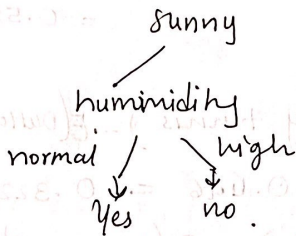 sunny
huminidity
normal high
Yes no.